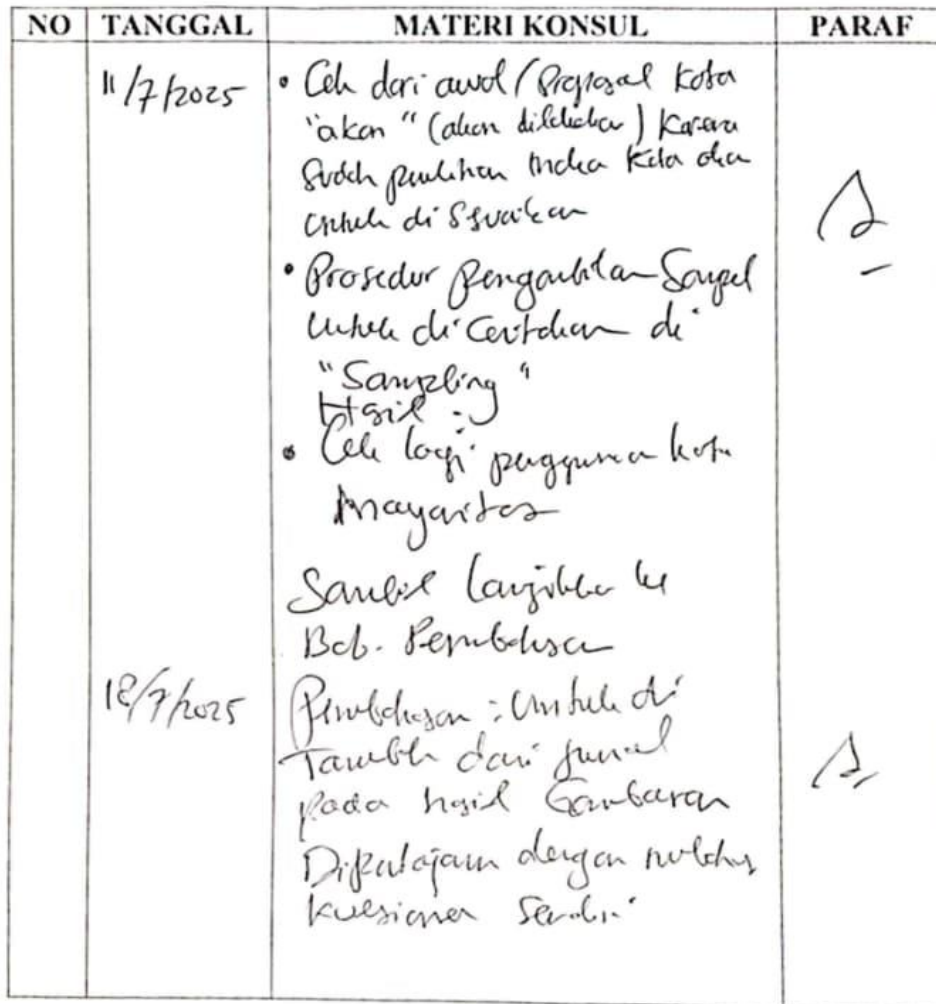 NO TANGGAL MATERI KONSUL PARAF
11/7/2025 • Cek dari awal / Proposal kata
"akan" (akan dilakukan) karena
sudah penelitian maka kata akan
untuk di sesuaikan
• Prosedur pengambilan sampel
untuk di ceritakan di
"Sampling"
Hasil :
• Cek lagi penggunaan kata
mayoritas
Sambil lanjutkan ke
Bab. Pembahasan
18/7/2025 Pembahasan : untuk di
Tambah dari jurnal
pada hasil Gambaran
Dipertajam dengan
kuesioner sendiri